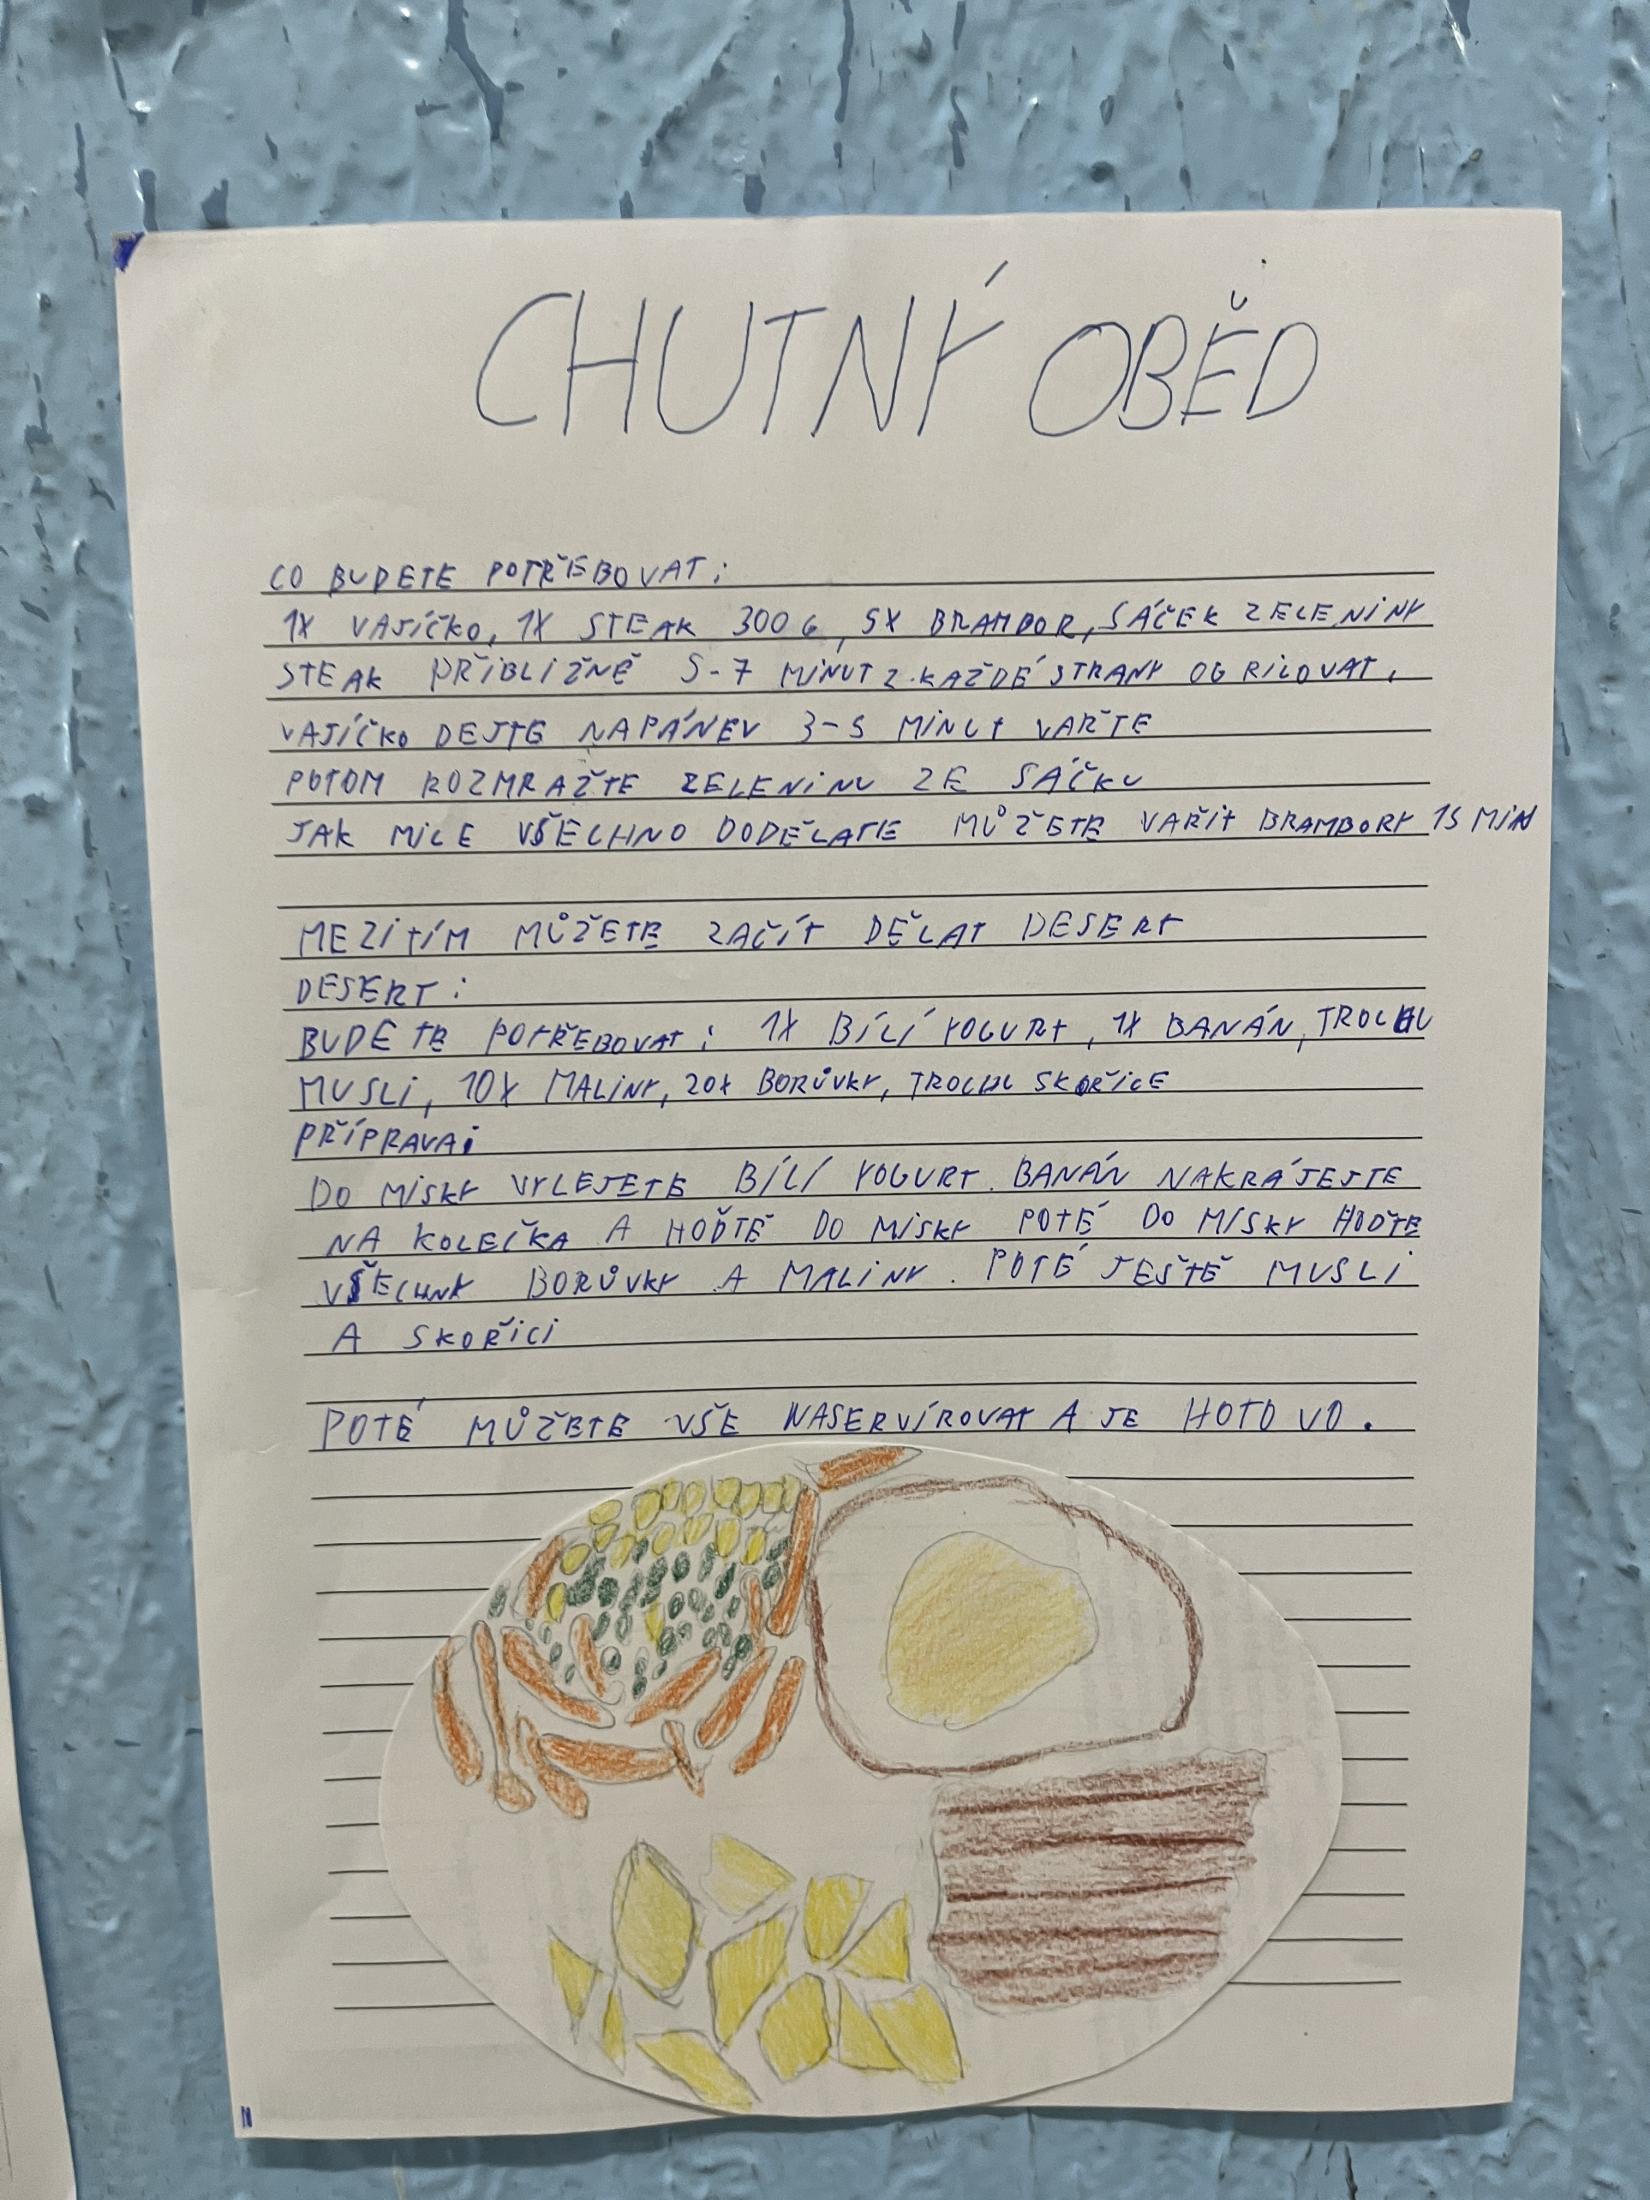 CHUTNÝ OBĚD
CO BUDETE POTŘEBOVAT:
1X VAJÍČKO, 1X STEAK 300G, 5X BRAMBOR, SÁČEK ZELENINY
STEAK PŘIBLIŽNĚ 5-7 MINUT Z KAŽDÉ STRANY OGRILOVAT.
VAJÍČKO DEJTE NA PÁNEV 3-5 MINUT VAŘTE
POTOM ROZMRAŽTE ZELENINU ZE SÁČKU
JAK MILE VŠECHNO DODĚLATE MŮŽETE VAŘIT BRAMBORY 15 MIN
MEZITÍM MŮŽETE ZAČÍT DĚLAT DESERT
DESERT:
BUDETE POTŘEBOVAT: 1X BÍLÍ YOGURT, 1X BANÁN, TROCHU
MUSLI, 10X MALINY, 20X BORŮVKY, TROCHU SKOŘICE
PŘÍPRAVA:
DO MISKY VYLEJETE BÍLÍ YOGURT. BANÁN NAKRÁJEJTE
NA KOLEČKA A HOĎTĚ DO MISKY POTÉ DO MISKY HOĎTE
VŠECHNY BORŮVKY A MALINY. POTÉ JEŠTĚ MUSLI
A SKOŘICI
POTÉ MŮŽETE VŠE NASERVÍROVAT A JE HOTOVO.